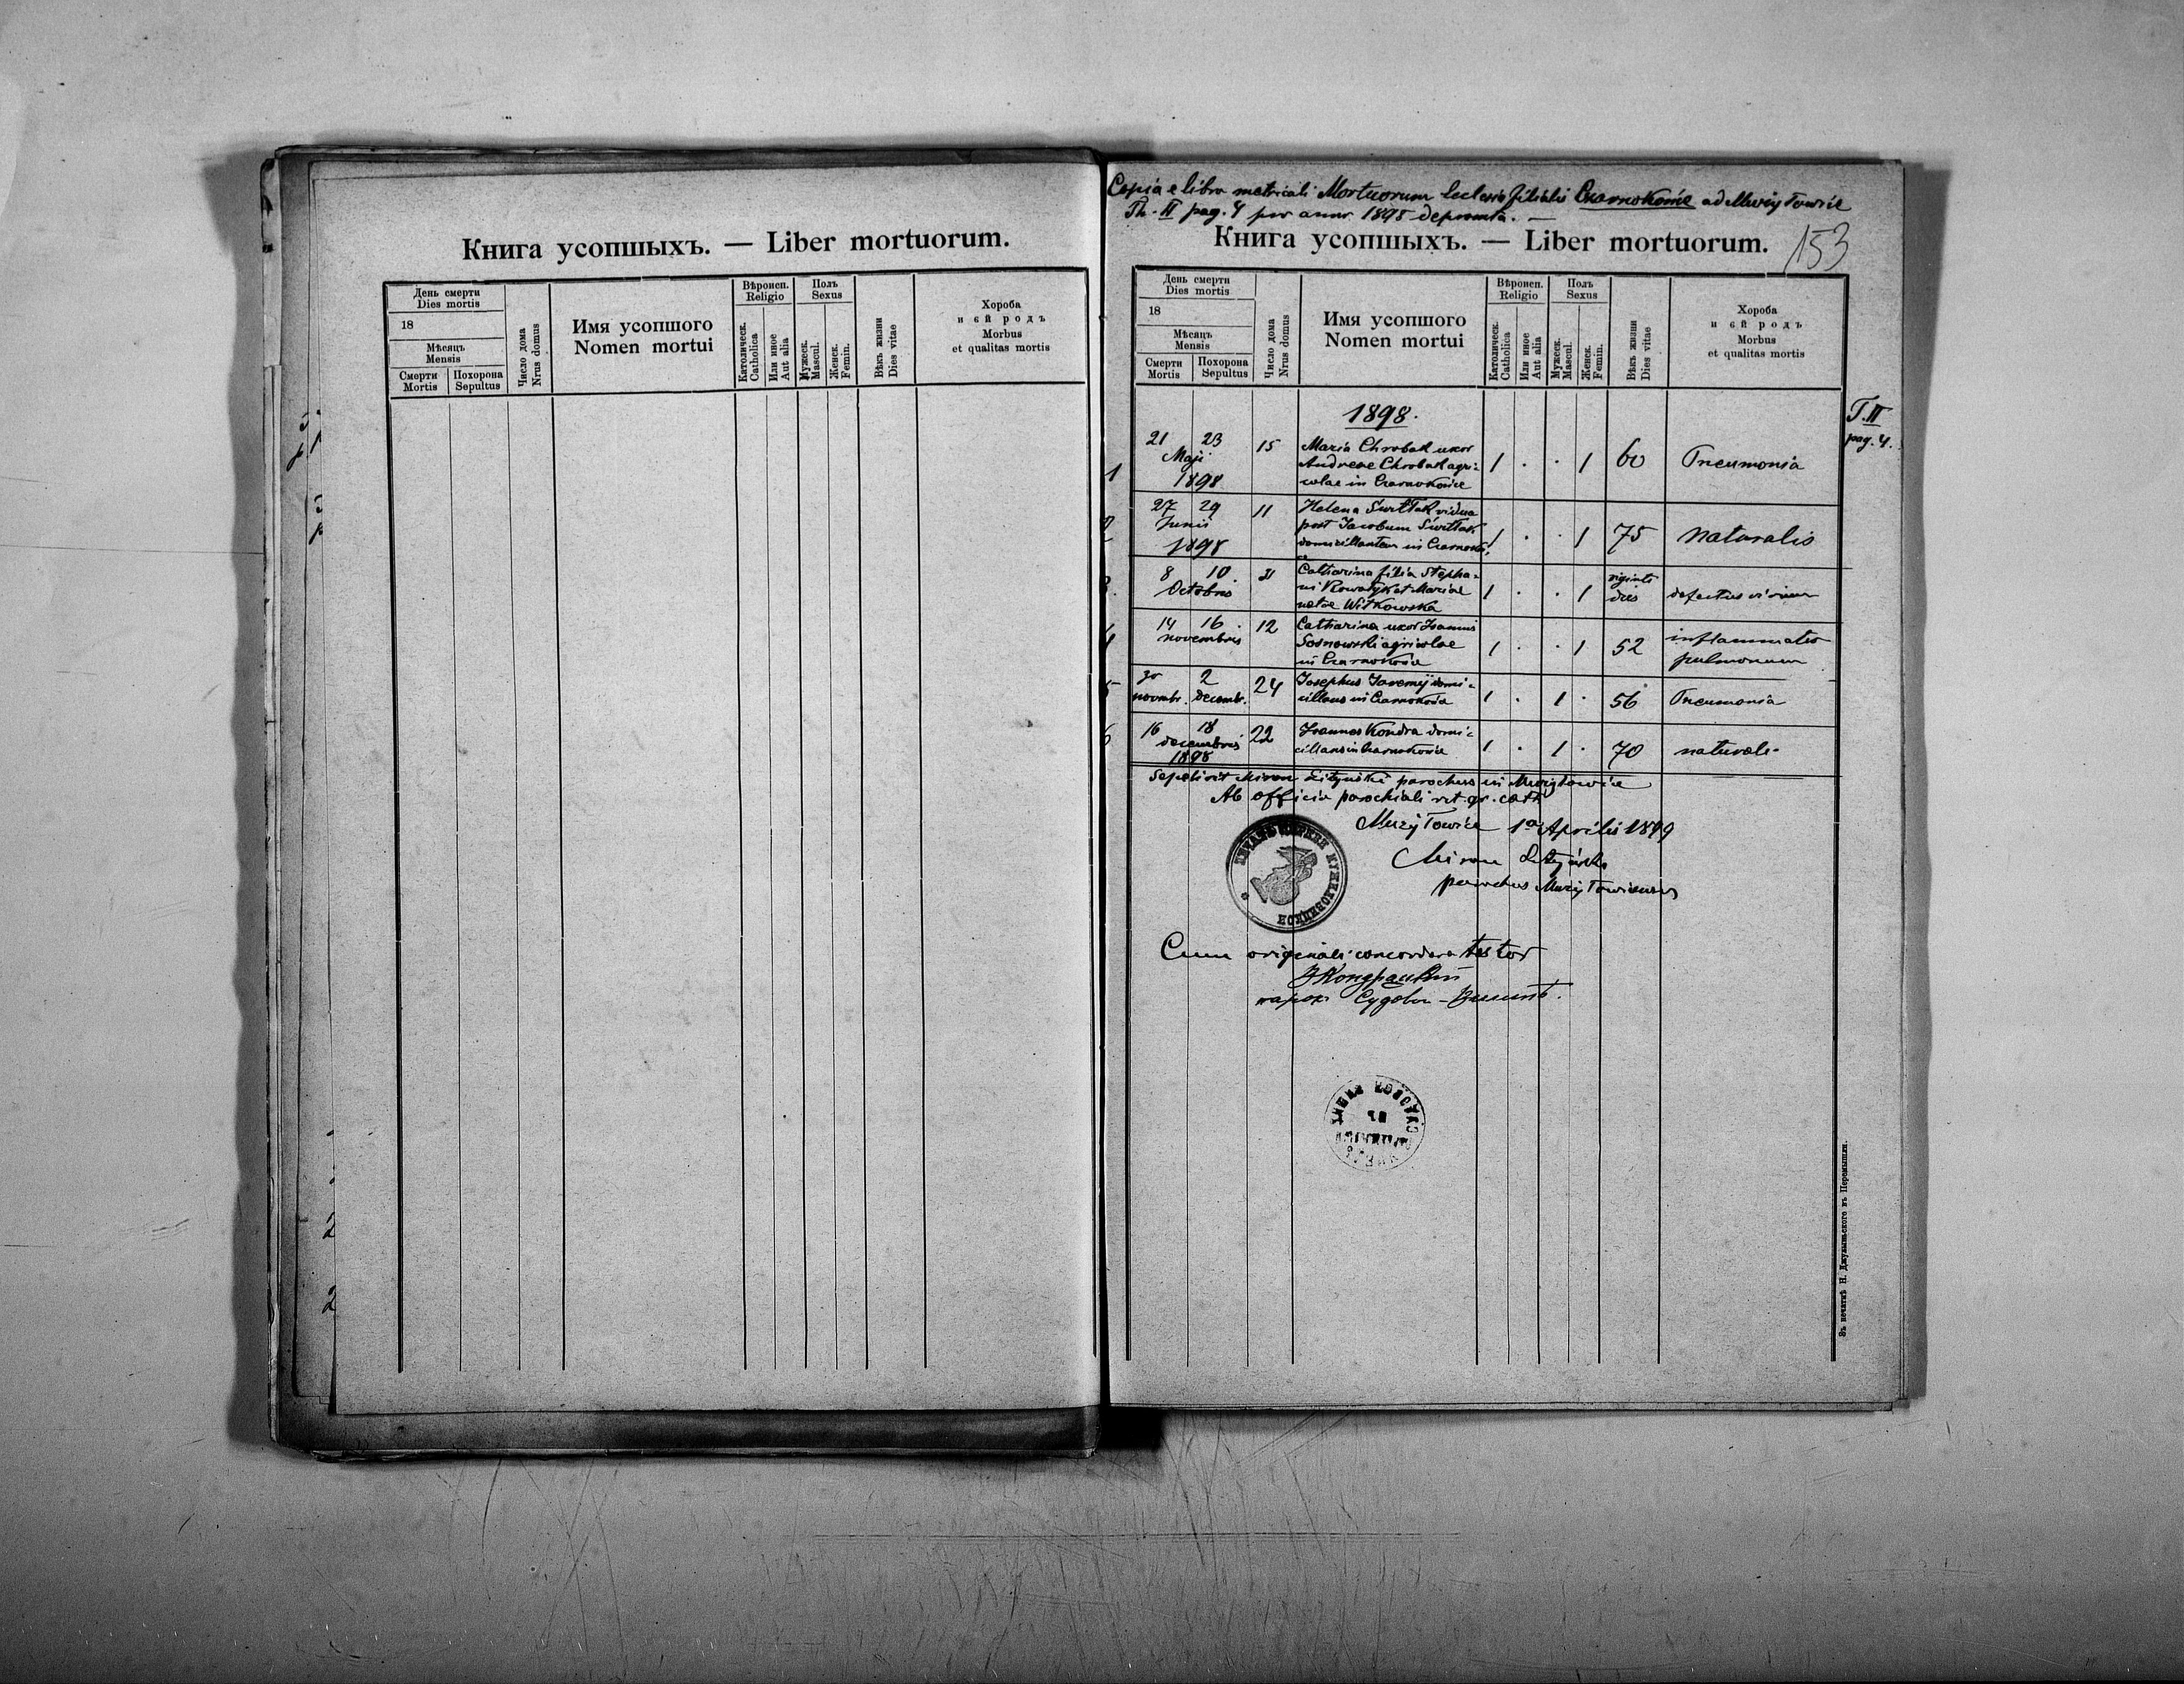 Книга усопшыхъ. — Liber mortuorum.
День смерти
Dies mortis
18
Мѣсяць
Mensis
Смерти
Mortis
Похорона
Sepultus
Число дома
Nrus domus
Имя усопшого
Nomen mortui
Вѣроисп.
Religio
Католическ.
Catholica
Или иное
Aut alia
Полъ
Sexus
Мужеск.
Mascul.
Женск.
Femin.
Вѣкъ жизни
Dies vitae
Хороба
и єй родъ
Morbus
et qualitas mortis
Copia e libro metricali Mortuorum Ecclesiae filialis Czarnokońce ad Mużyłowice
Th. II pag. 4 pro anno 1898 depromta. —
Книга усопшыхъ. — Liber mortuorum.
153
День смерти
Dies mortis
18
Мѣсяць
Mensis
Смерти
Mortis
Похорона
Sepultus
Число дома
Nrus domus
Имя усопшого
Nomen mortui
Вѣроисп.
Religio
Католическ.
Catholica
Или иное
Aut alia
Полъ
Sexus
Мужеск.
Mascul.
Женск.
Femin.
Вѣкъ жизни
Dies vitae
Хороба
и єй родъ
Morbus
et qualitas mortis
1898.
T. II
pag. 4.
1 21 23 15 Maria Chrobak uxor 1 . . 1 60 Pneumonia
Maji Andreae Chrobak agri-
1898 colae in Czarnokońce
27 29 11 Helena Świtłak vidua 1 . . 1 75 naturalis
Junii post Jacobum Świtłak
1898 domicillantem in Czarnokoń.
8 10. Catharina filia Stepha- 1 . . 1 viginti defectus virium
Octobris ni Kowatyk et Mariae dies
natae Witkowska
14 16. 12 Catharina uxor Joannis 1 . . 1 52 inflammatio
novembris Sosnowski agricolae pulmonum
in Czarnokońce
30 2 24 Josephus Jaremij domi- 1 . 1 . 56 Pneumonia
novmbr. Decembr. cillans in Czarnokońce
16 18 22 Joannes Kondra domi- 1 . 1 . 70 naturalis
decembris cillans in Czarnokońce
1898
Sepelivit Miron Lityński parochus in Mużyłowice
Ab officio parochiali rit. gr. cath
Mużyłowice 1a Aprilis 1899
Miron Lityński
parochus Mużyłowicensis
Cum originali concordare testor
парох
Въ печатнѣ Н. Джулыньского въ Перемышли.